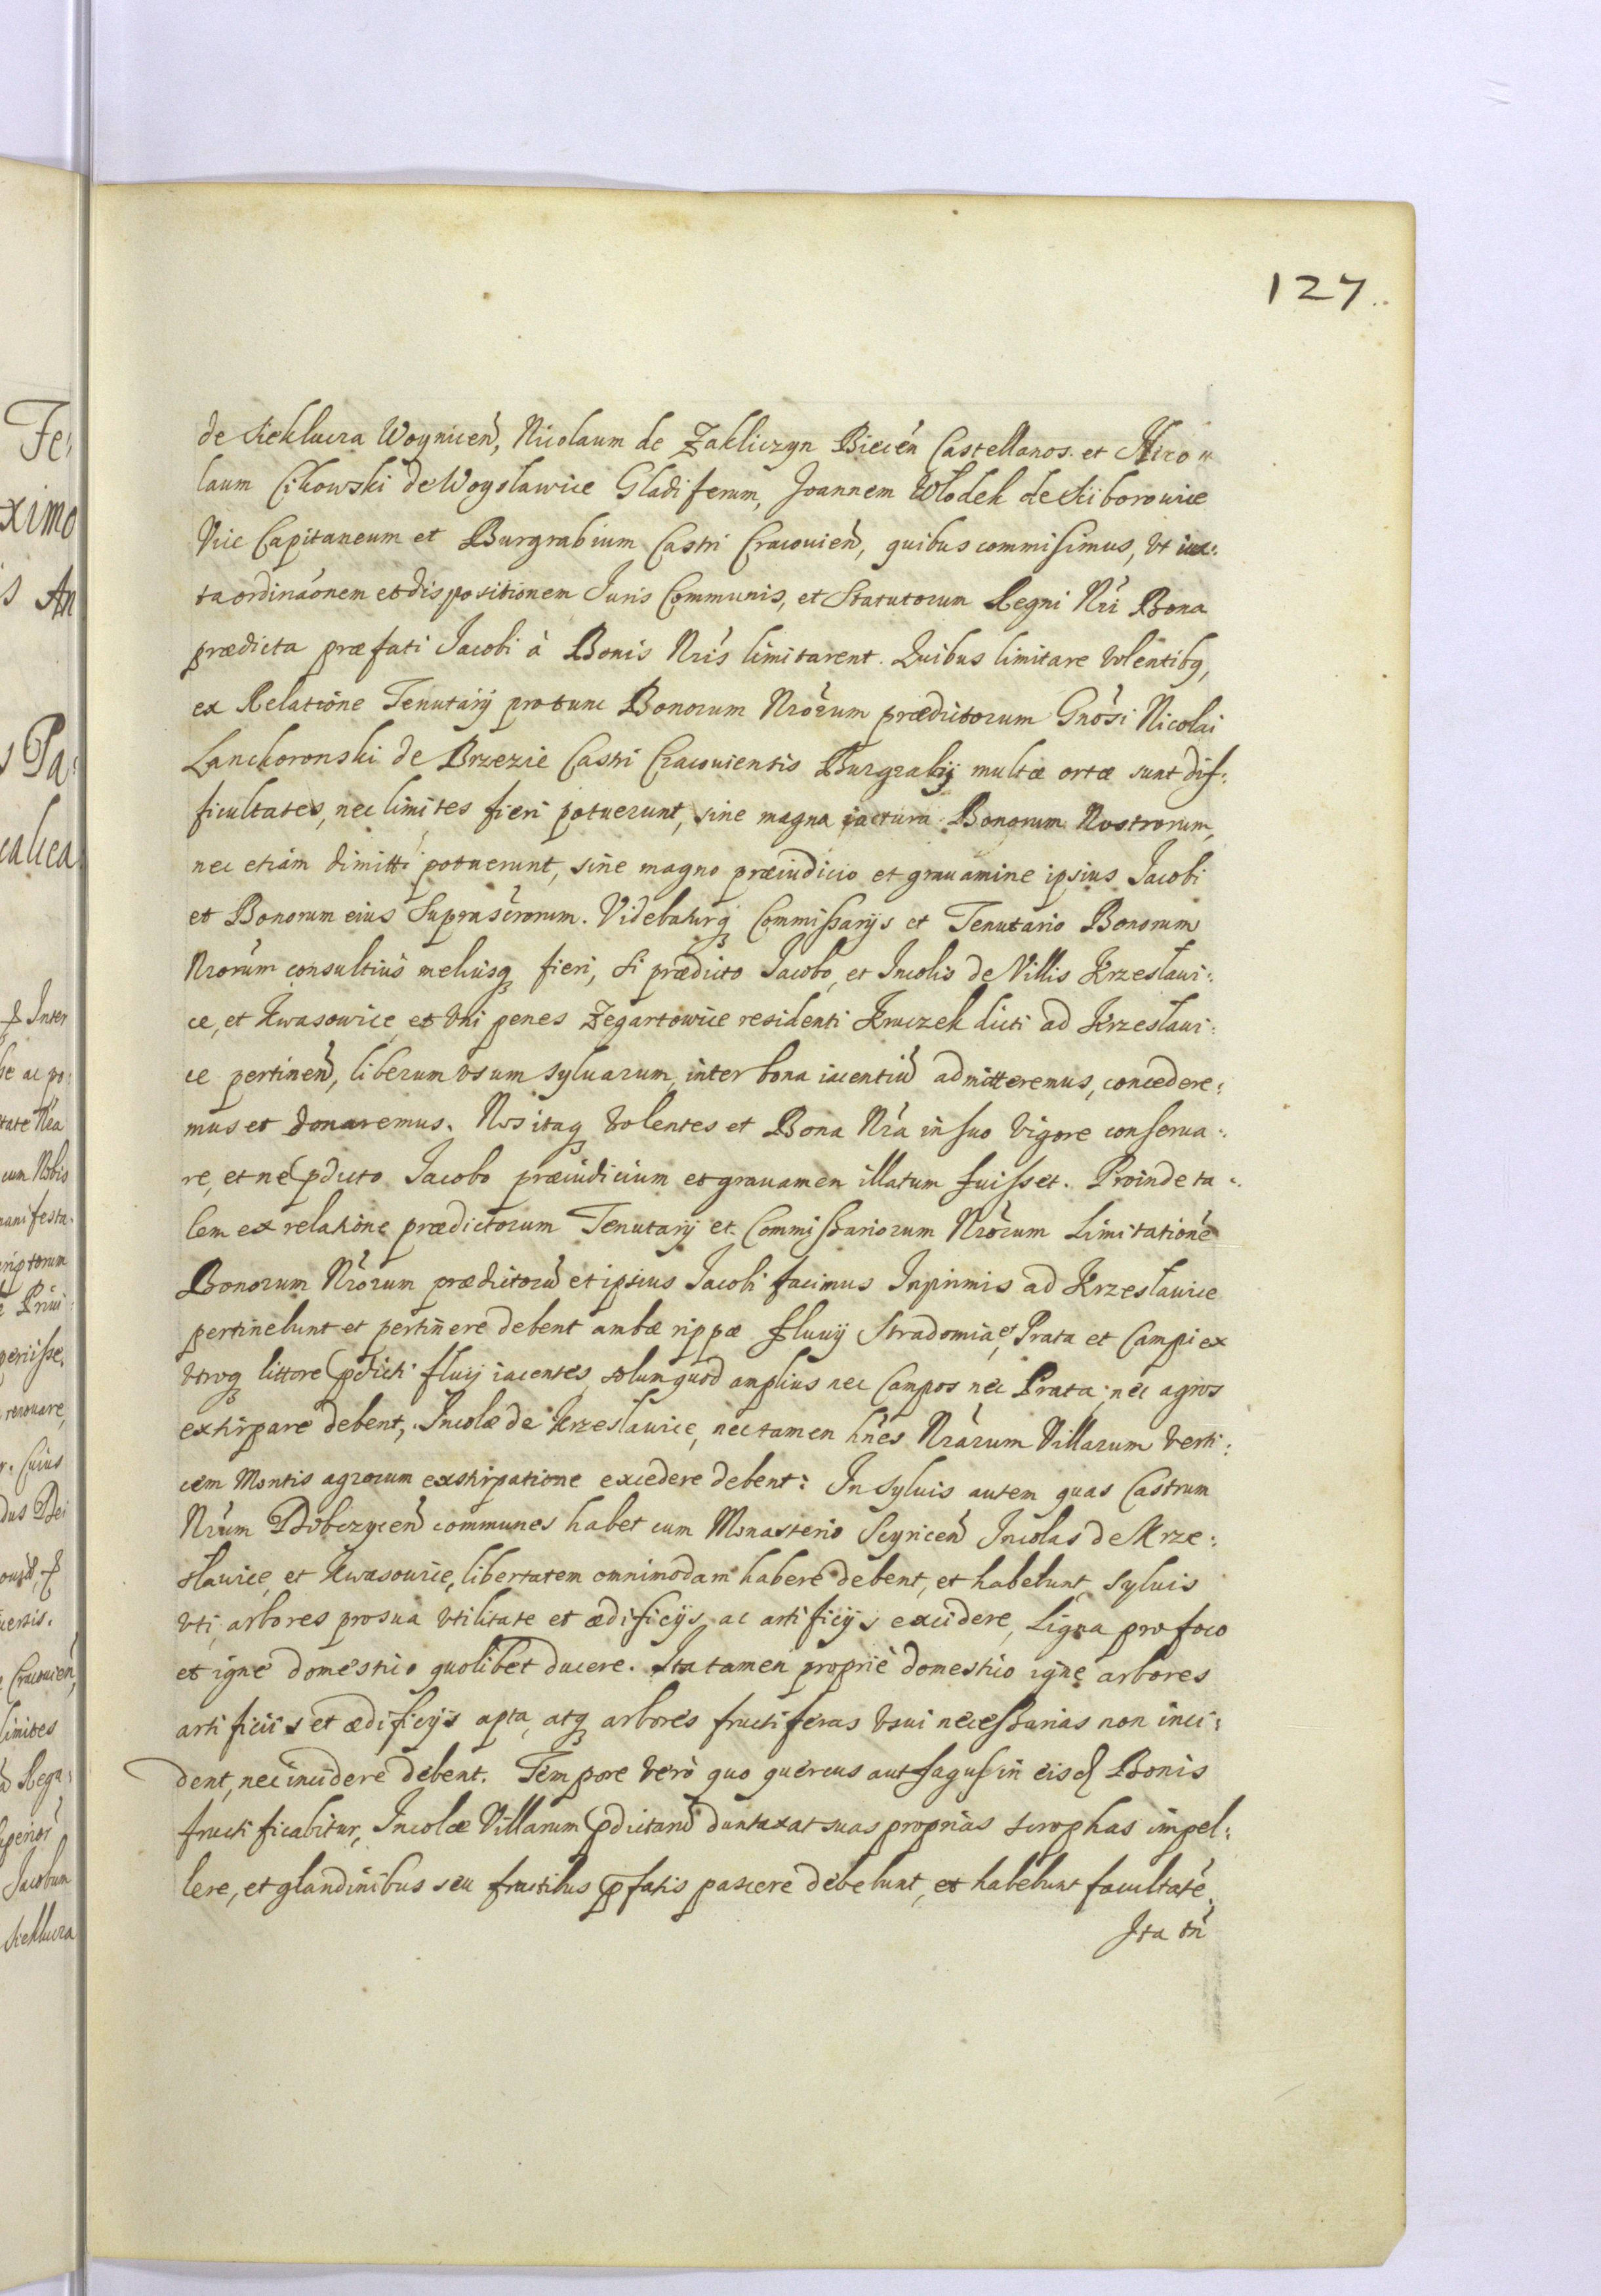 127.
de Siekluca Woynicen, Nicolaum de Zakliczyn Biecen Castellanos et Nico=
laum Cikowski de Woyslawice Gladiferum, Joannem Wlodek de Kiborowice
Vice Capitaneum et Burgrabium Castri Cracovien, quibus commisimus, vt iux:
ta ordinãonem et dispositionem Juris Communis, et Statutorum Regni Nri Bona
prædicta præfati Jacobi à Bonis Nris limitarent. Quibus limitare volentibq,
ex Relatione Tenutarij protunc Bonorum Nrorum prædictorum Gnosi Nicolai
Lanckoronski de Brzezie Castri Cracouientis Burgrabij multæ ortæ sunt dif:
ficultates, nec limites fieri potuerunt, sine magna iactura Bonorum Nostrorum,
nec etiam dimitti potuerunt, sine magno præiudicio et grauamine ipsius Jacobi
et Bonorum eius Suprascrorum. Videbaturq Commissarijs et Tenutario Bonorum
Nrorum consultius meliusq fieri, si prædicto Jacobo, et Incolis de Villis Krzeslaui:
ce, et Kwasowice, et vni penes Zegartowice residenti Kruczek dicti ad Krzeslaui:
ce pertinen, liberum vsum syluarum, inter bona iacentiũ admitteremus, concedere:
mus et donaremus. Nos itaq volentes et Bona Nra in suo vigore conserua:
re, et ne pdicto Jacobo præiudicium et grauamen illatum fuisset. Proinde ta:
lem ex relatione prædictorum Tenutarij et Commissariorum Nrorum Limitationẽ
Bonorum Nrorum prædictorũ et ipsius Jacobi facimus Inprimis ad Krzeslauice
pertinebunt et pertinere debent ambæ rippæ fluuij Stradomia, et Prata et Campi ex
vtroq littore pdicti fluij iacentes, solum quod amplius nec Campos nec Prata, nec agros
extirpare debent, Incolæ de Krzeslauice, nec tamen hnes Nrarum Villarum verti:
cem Montis agrorum exstirpatione excedere debent: In syluis autem quas Castrum
Nrum Dobczycen communes habet cum Monasterio Scyricen Incolas de Krze:
slauice, et Kwasouice, libertatem omnimodam habere debent, et habebunt, syluis
vti, arbores pro sua vtilitate et ædificijs, ac artificijs excidere, Ligna pro foco
et igne domestico quolibet ducere. Ita tamen proprie domestico igne arbores
artificiis et ædificijs apta, atq arbores fructiferas vsui necessarias non inci:
dent, nec incidere debent. Tempore verò quo quercus aut fagus in eisd Bonis
fructificabitur, Incolæ Villarum pdictarũ duntaxat suas proprias scrophas impel:
lere, et glandinibus seu fructibus pfatis pascere debebunt, et habebunt facultatẽ,
Ita tñ